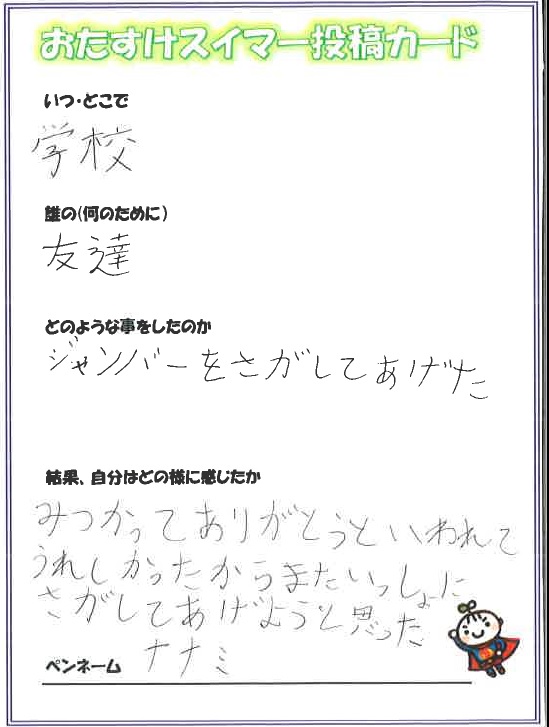 おたすけスイマー投稿カード
いつ・どこで
学校
誰の(何のために)
友達
どのような事をしたのか
ジャンバーをさがしてあげた
結果、自分はどの様に感じたか
みつかってありがとうといわれて
うれしかったからまたいっしょに
さがしてあげようと思った
ペンネーム ナナミ